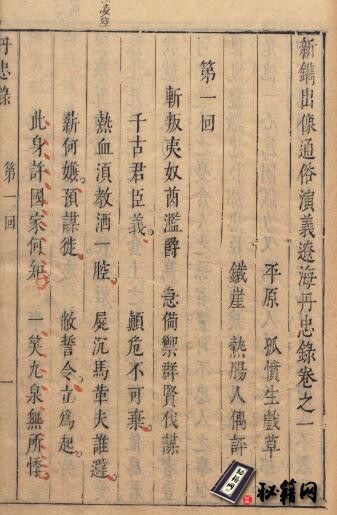 新鐫出像通俗演義遼海丹忠錄卷之一
平原　孤憤生戲草
鐵崖　熱腸人偶評
第一回
斬叛夷奴酋濫爵　急備禦群賢伐謀
千古君臣義　顛危不可棄
熱血須教洒一腔　屍沉馬革夫誰避
薪何嫌預謀徙　敝誓令立為起
此身許國家何知　一笑九泉無所悸
丹忠錄　第一回　一
秘籍网
秘籍网